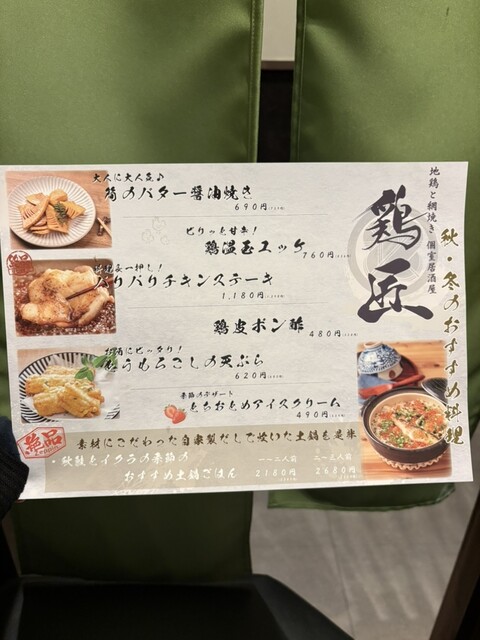 地鶏と網焼き 個室居酒屋
鶏匠
秋・冬のおすすめ料理
大人に大人気♪
筍のバター醤油焼き
690円
ピリッと甘辛!
鶏温玉ユッケ
760円
一押し!
パリパリチキンステーキ
1,180円
鶏皮ポン酢
480円
お酒にピッタリ!
とうもろこしの天ぷら
620円
季節のデザート
とちおとめアイスクリーム
490円
絶品
素材にこだわった自家製だしで炊いた土鍋を是非
・秋鮭とイクラの季節の
おすすめ土鍋ごはん
一〜二人前
2180円
二〜三人前
2680円